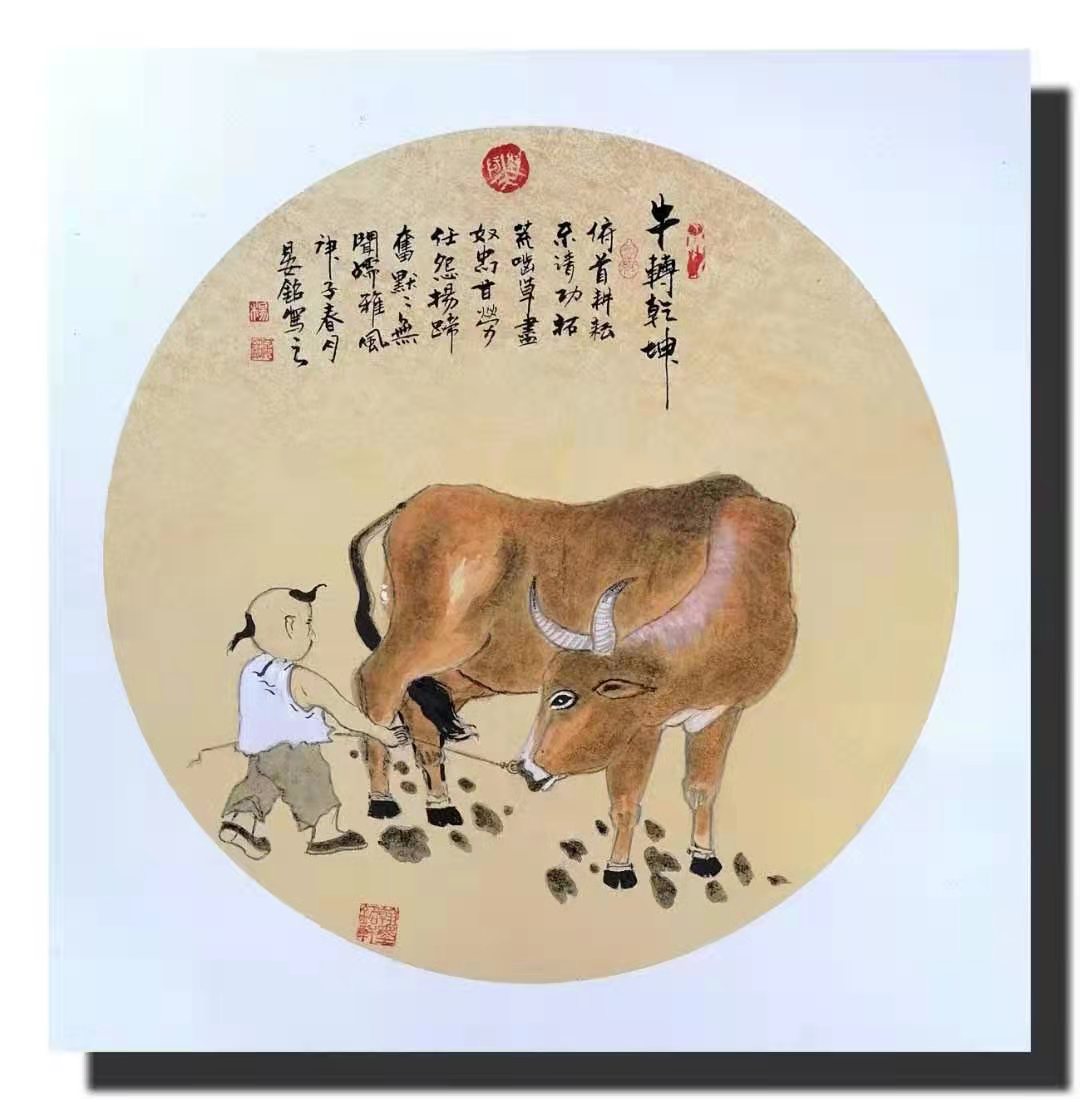 牛轉乾坤
俯首耕耘
不請功拓
荒嚙草盡
奴忠甘勞
任怨揚蹄
奮默〻無
聞孺雅風
庚子春月
晏銘寫之
楊